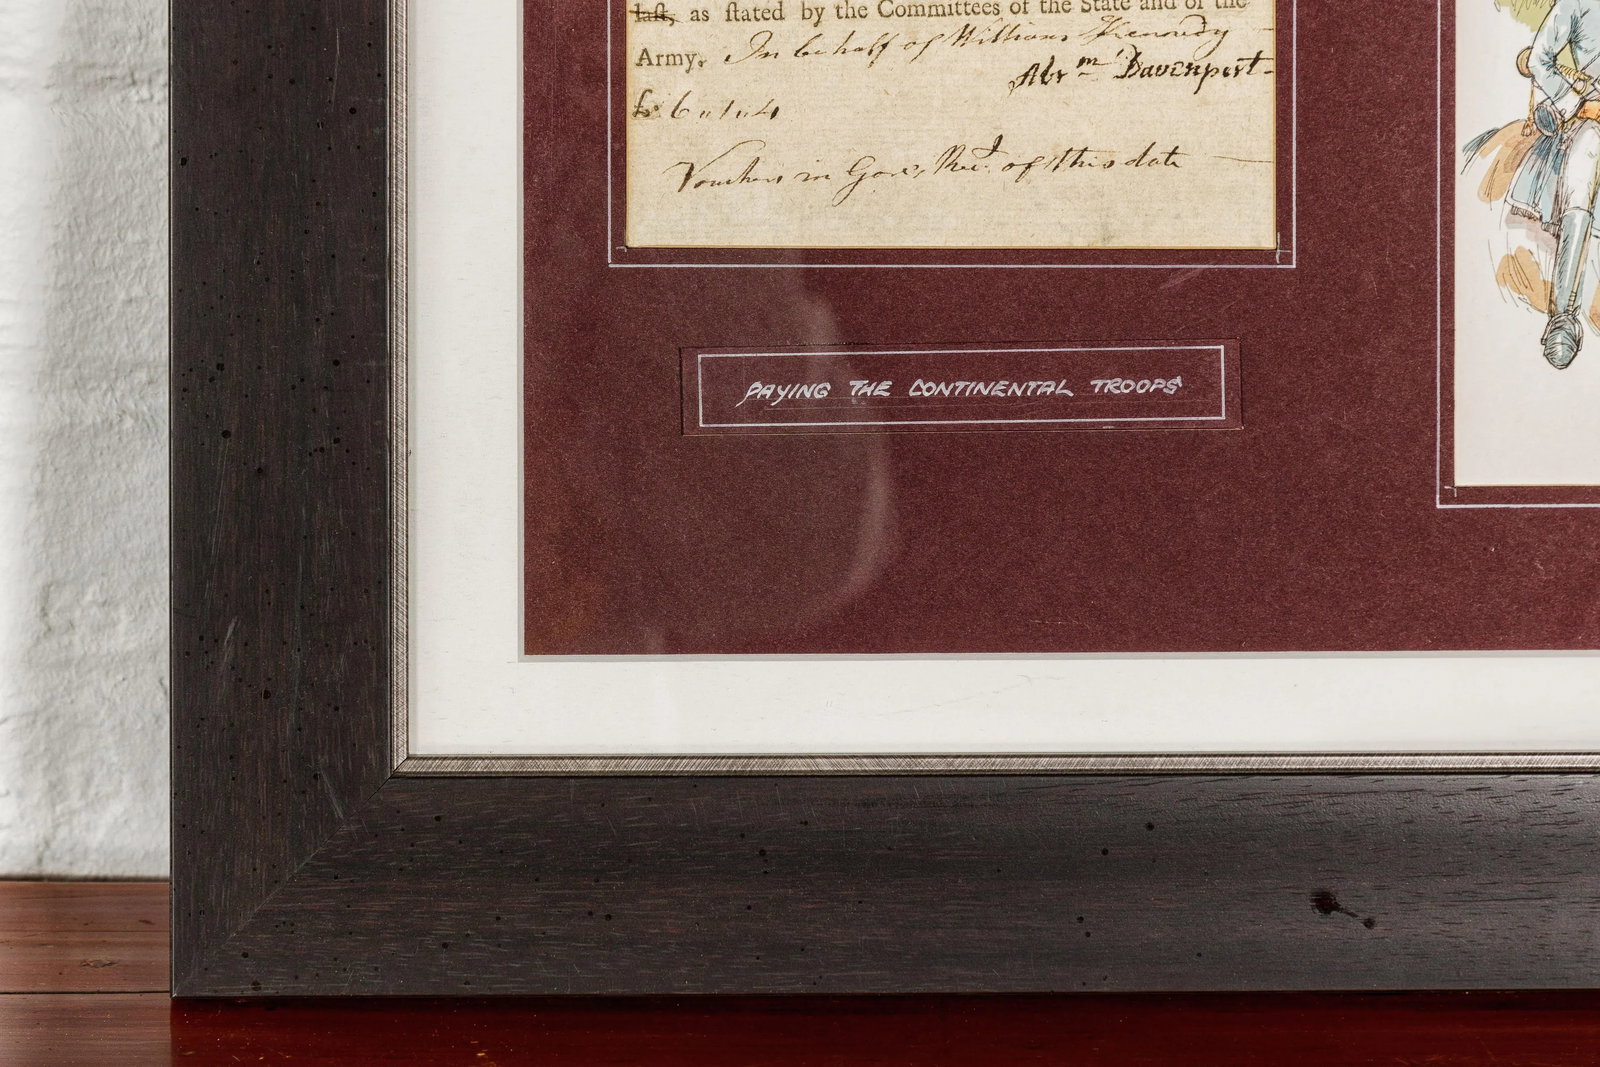 laſt, as ſtated by the Committees of the State and of the
Army. In behalf of William Kennedy
Abrm Davenport
£ 6 " 1 " 4
Vouchers in Genl Recd. of this date
PAYING THE CONTINENTAL TROOPS